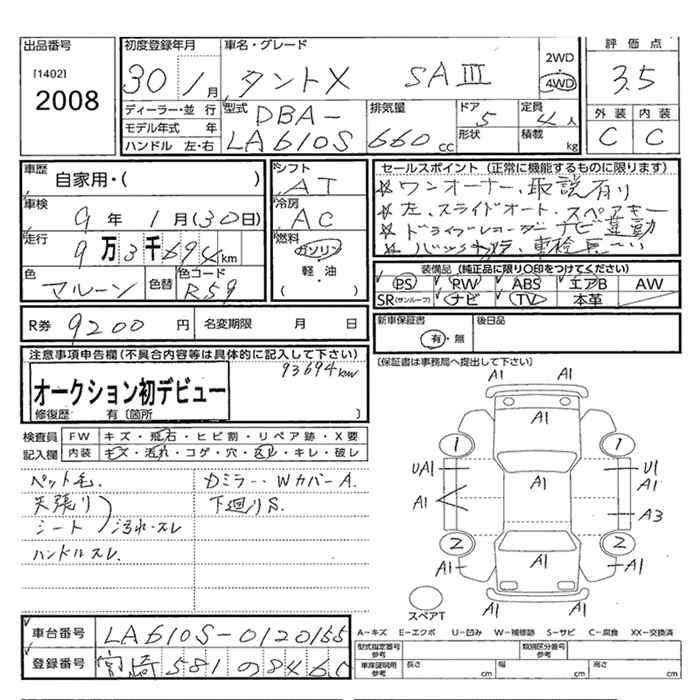 出品番号
[1402]
2008
初度登録年月
30 1月
車名・グレード
タントX SAⅢ
2WD
4WD
評価点
3.5
外装 内装
C C
ディーラー・並行
モデル年式 年
ハンドル 左・右
型式
DBA-
LA610S
排気量
660cc
ドア
5
形状
定員
4人
積載 kg
車歴
自家用・( )
車検
9年 1月(30日)
走行
9万3千694km
色
マルーン
色替
色コード
R59
シフト
AT
冷房
AC
燃料
ガソリン
軽・油
( )
セールスポイント (正常に機能するものに限ります)
ワンオーナー、取説有り
左、スライドオート、スペアキー
ドライブレコーダー ナビ連動
バックカメラ、車検長〜い
装備品 (純正品に限り〇印をつけてください)
PS PW ABS エアB AW
SR(サンルーフ) ナビ TV 本革
R券 9200円
名変期限 月 日
新車保証書
有・無
後日品
[保証書は事務局へ提出して下さい]
注意事項申告欄(不具合内容等は具体的に記入して下さい)
93694km
オークション初デビュー
修復歴 有[箇所 ]
検査員
記入欄
FW キズ・飛石・ヒビ割・リペア跡・X要
内装 キズ・汚れ・コゲ・穴・ キレ・破レ
ペット毛.
天張り
シート 汚れ・スレ
ハンドルスレ.
Dミラー・WカバーA.
下廻りS.
A1 A1
A1
1 1
UA1 A1 U1
A1 A1
A3
2 2
A1 A1 A1
A1
スペアT
A-キズ E-エクボ U-凹み W-補修跡 S-サビ C-腐食 XX-交換済
車台番号
LA610S-0120155
登録番号
宮崎581 の8465
型式指定番号
参考
類別区分番号
参考
車庫証明用
参考
長さ cm
幅 cm
高さ cm